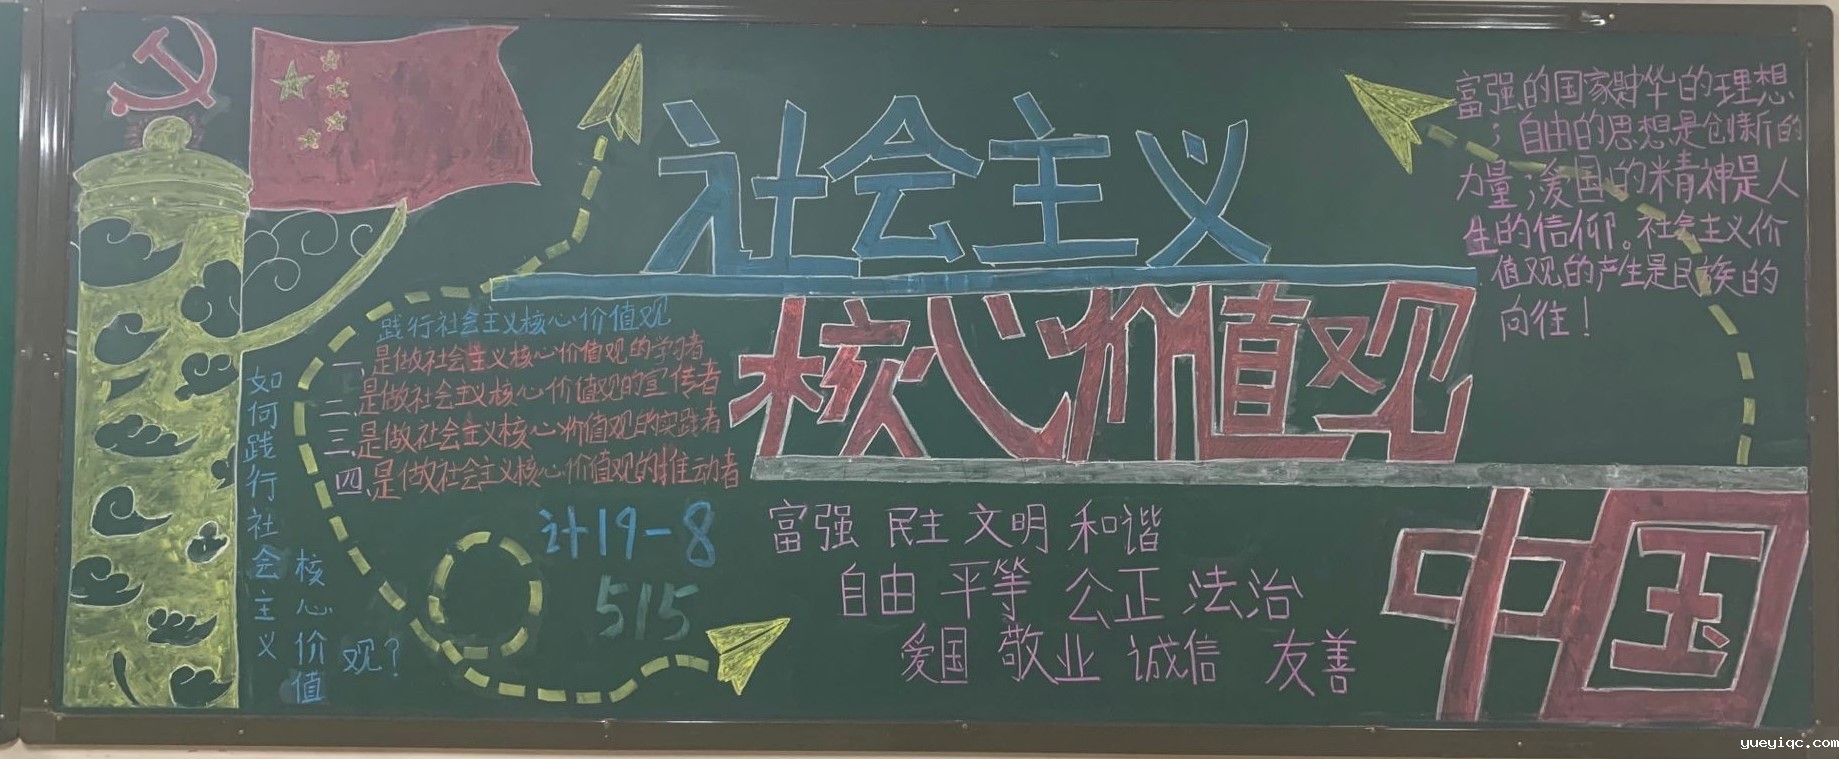 社会主义
核心价值观
中国
富强的国家财华的理想
；自由的思想是创新的
力量；爱国的精神是人
生的信仰。社会主义价
值观的产生是民族的
向往！
践行社会主义核心价值观
一、是做社会主义核心价值观的学习者
二、是做社会主义核心价值观的宣传者
三、是做社会主义核心价值观的实践者
四、是做社会主义核心价值观的推动者
如何践行社会主义
核心价值
观？
计19-8
515
富强 民主 文明 和谐
自由 平等 公正 法治
爱国 敬业 诚信 友善
yueyiqc.com